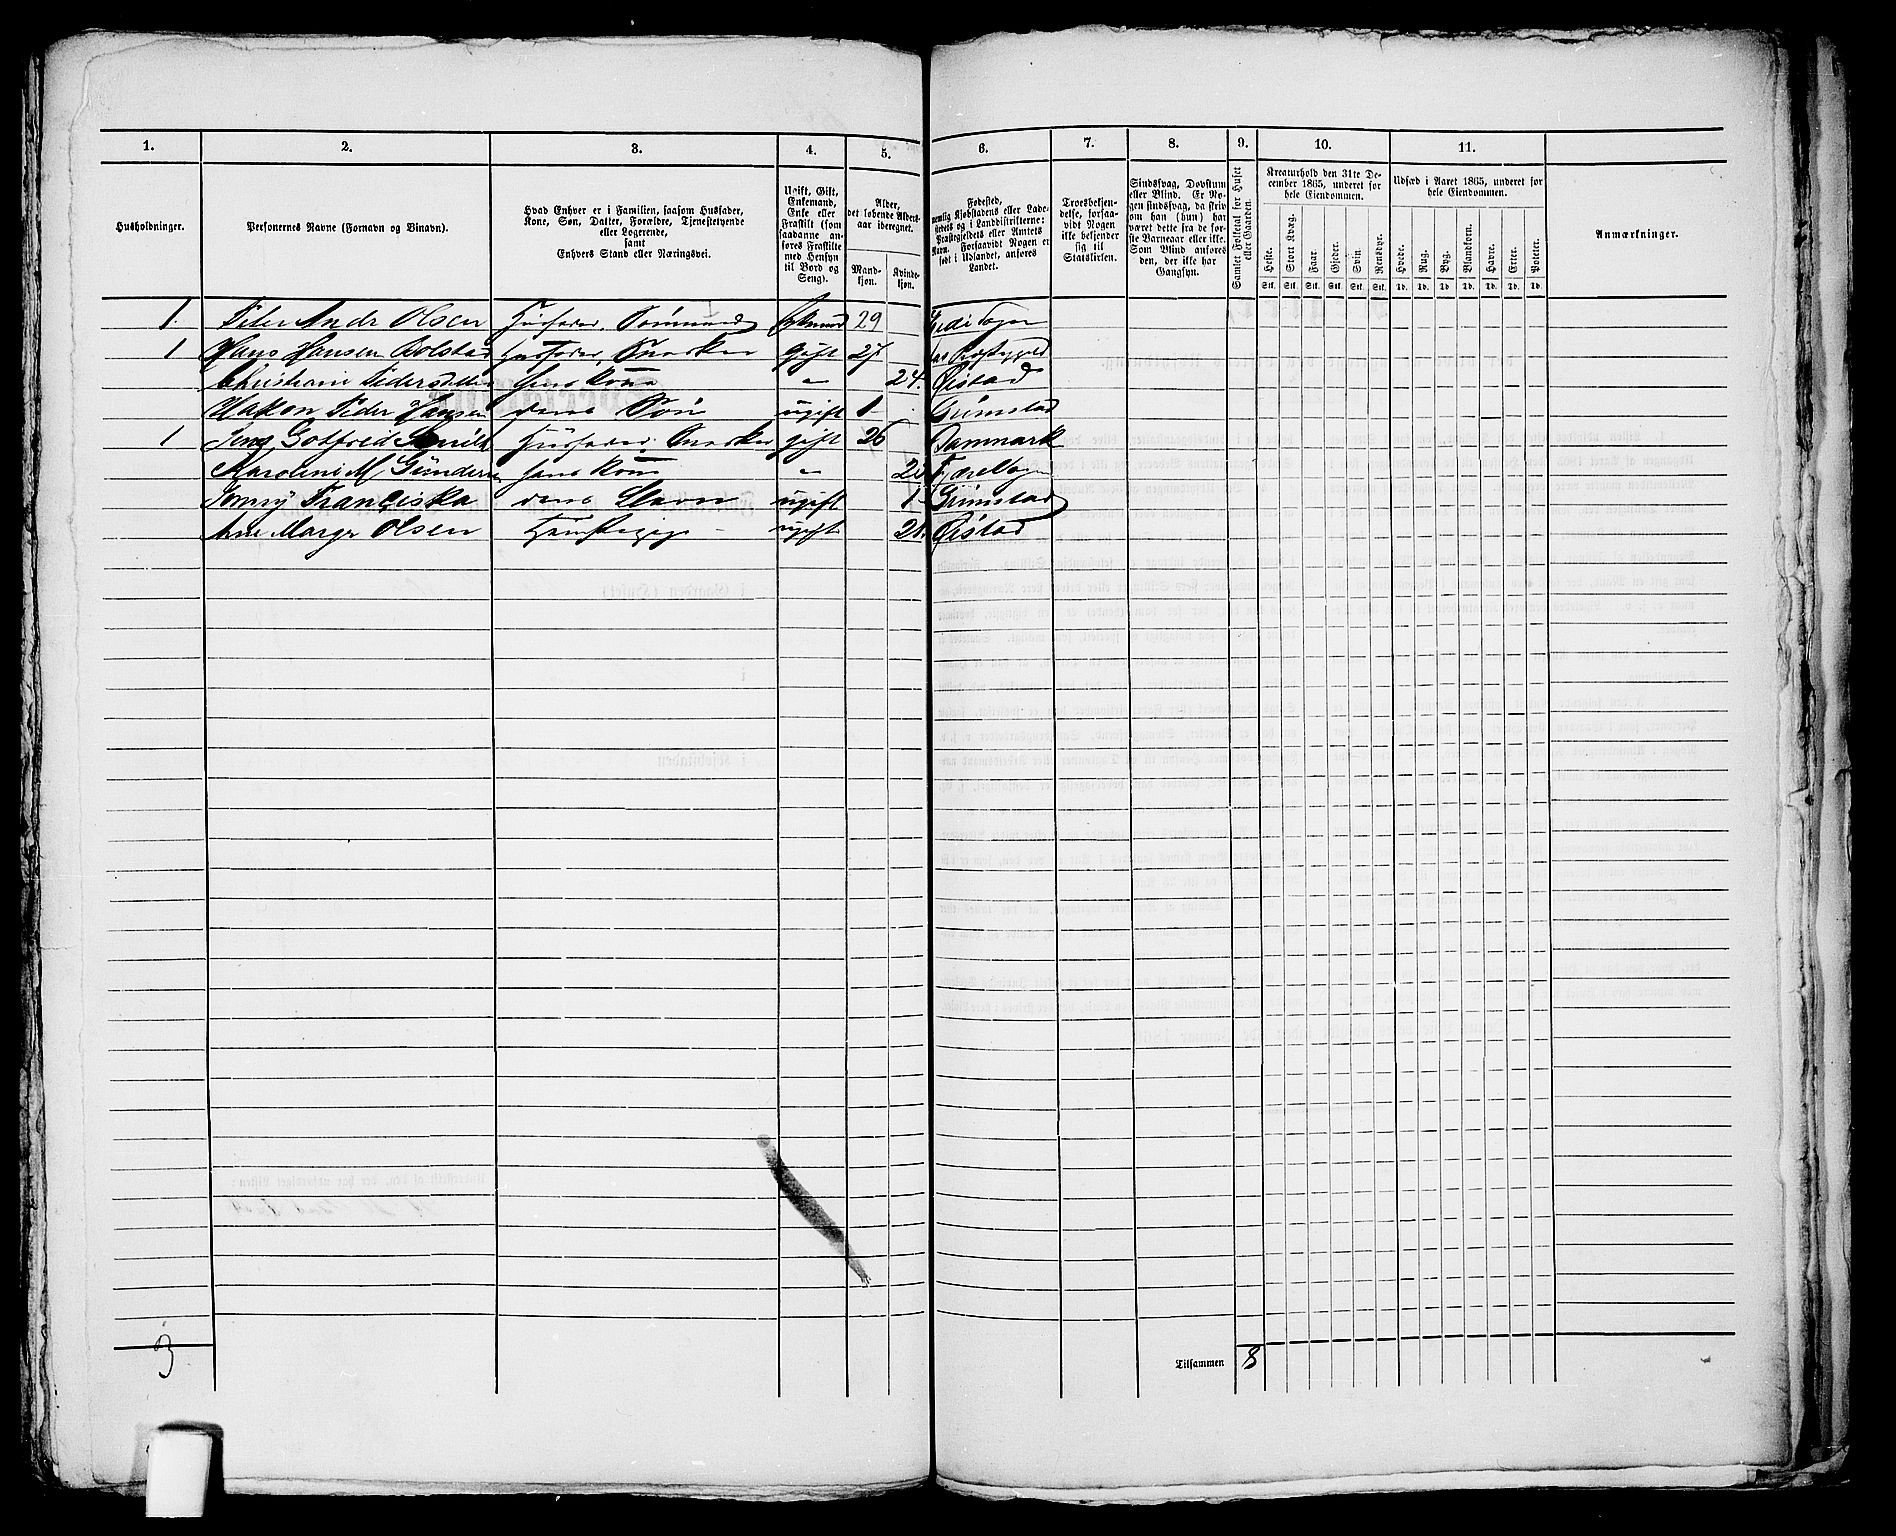 1. 2. 3. 4. 5. 6. 7. 8. 9. 10. 11.
Husholdninger.
Personernes Navne (Fornavn og Binavn).
Hvad Enhver er i Familien, saasom Husfader,
Kone, Søn, Datter, Forældre, Tjenestetyende
eller Logerende,
samt
Enhvers Stand eller Næringsvei.
Ugift, Gift,
Enkemand,
Enke eller
Fraskilt (som
saadanne an-
føres Fraskilte
med Hensyn
til Bord og
Seng).
Alder,
det løbende Alders-
aar iberegnet.
Mand-
kjøn.
Kvinde-
kjøn.
Fødested,
nemlig Kjøbstadens eller Lade-
stedets og i Landdistrikterne:
Præstegjeldets eller Amtets
Navn. Forsaavidt Nogen er
født i Udlandet, anføres
Landet.
Troesbekjen-
delse, forsaa-
vidt Nogen
ikke bekjender
sig til
Statskirken.
Sindssvag, Døvstum
eller Blind. Er No-
gen sindssvag, da skriv
om han (hun) har
været dette fra de før-
ste Barneaar eller ikke.
Som Blind anføres
den, der ikke har
Gangsyn.
Samlet Folketal for Huset
eller Gaarden.
Kreaturhold den 31te De-
cember 1865, underet for
hele Eiendommen.
Heste. Stort Kvæg. Faar. Gjeder. Svin. Rensdyr.
Stk. Stk. Stk. Stk. Stk. Stk.
Udsæd i Aaret 1865, underet for
hele Eiendommen.
Hvede. Rug. Byg. Blandkorn. Havre. Erter. Poteter.
Td. Td. Td. Td. Td. Td. Td.
Anmærkninger.
1. Andr Olsen Husfader, Sømand 29
1 Hans Hansen Bolstad Husfader, Snedker gift 27
Christiani Pedersdatter hans Kone 24. Øistad
Hakon Peder Hansen deres Søn ugift 1 Grimstad
1 Jens Gotfred Husfader. Snedker gift 26 Danmark
Karolini M Gunders hans Kone
Franciska deres Barn ugift 1 Grimstad
Ane Margr Olsen ugift Øistad
3 Tilsammen 8